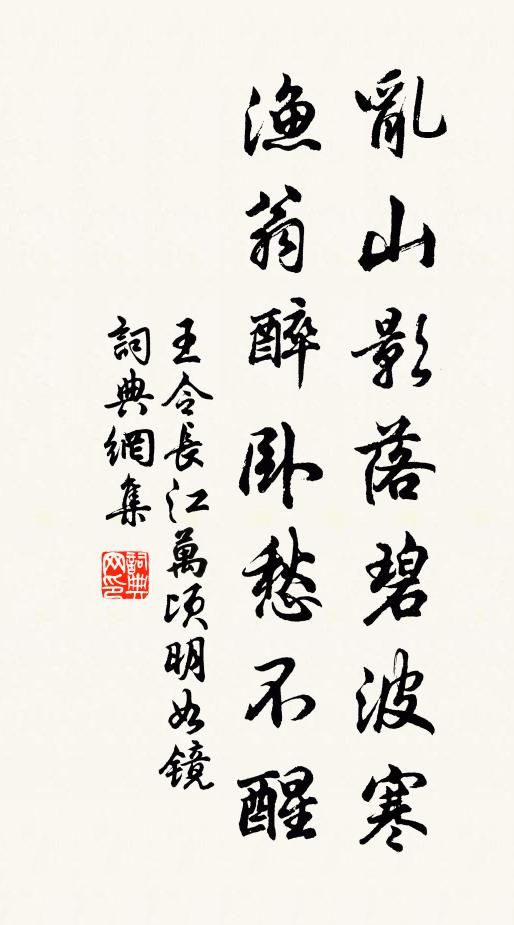 亂山影落碧波寒
漁翁醉臥愁不醒
王令長江萬頃明如鏡
詞典網集
詞典網印